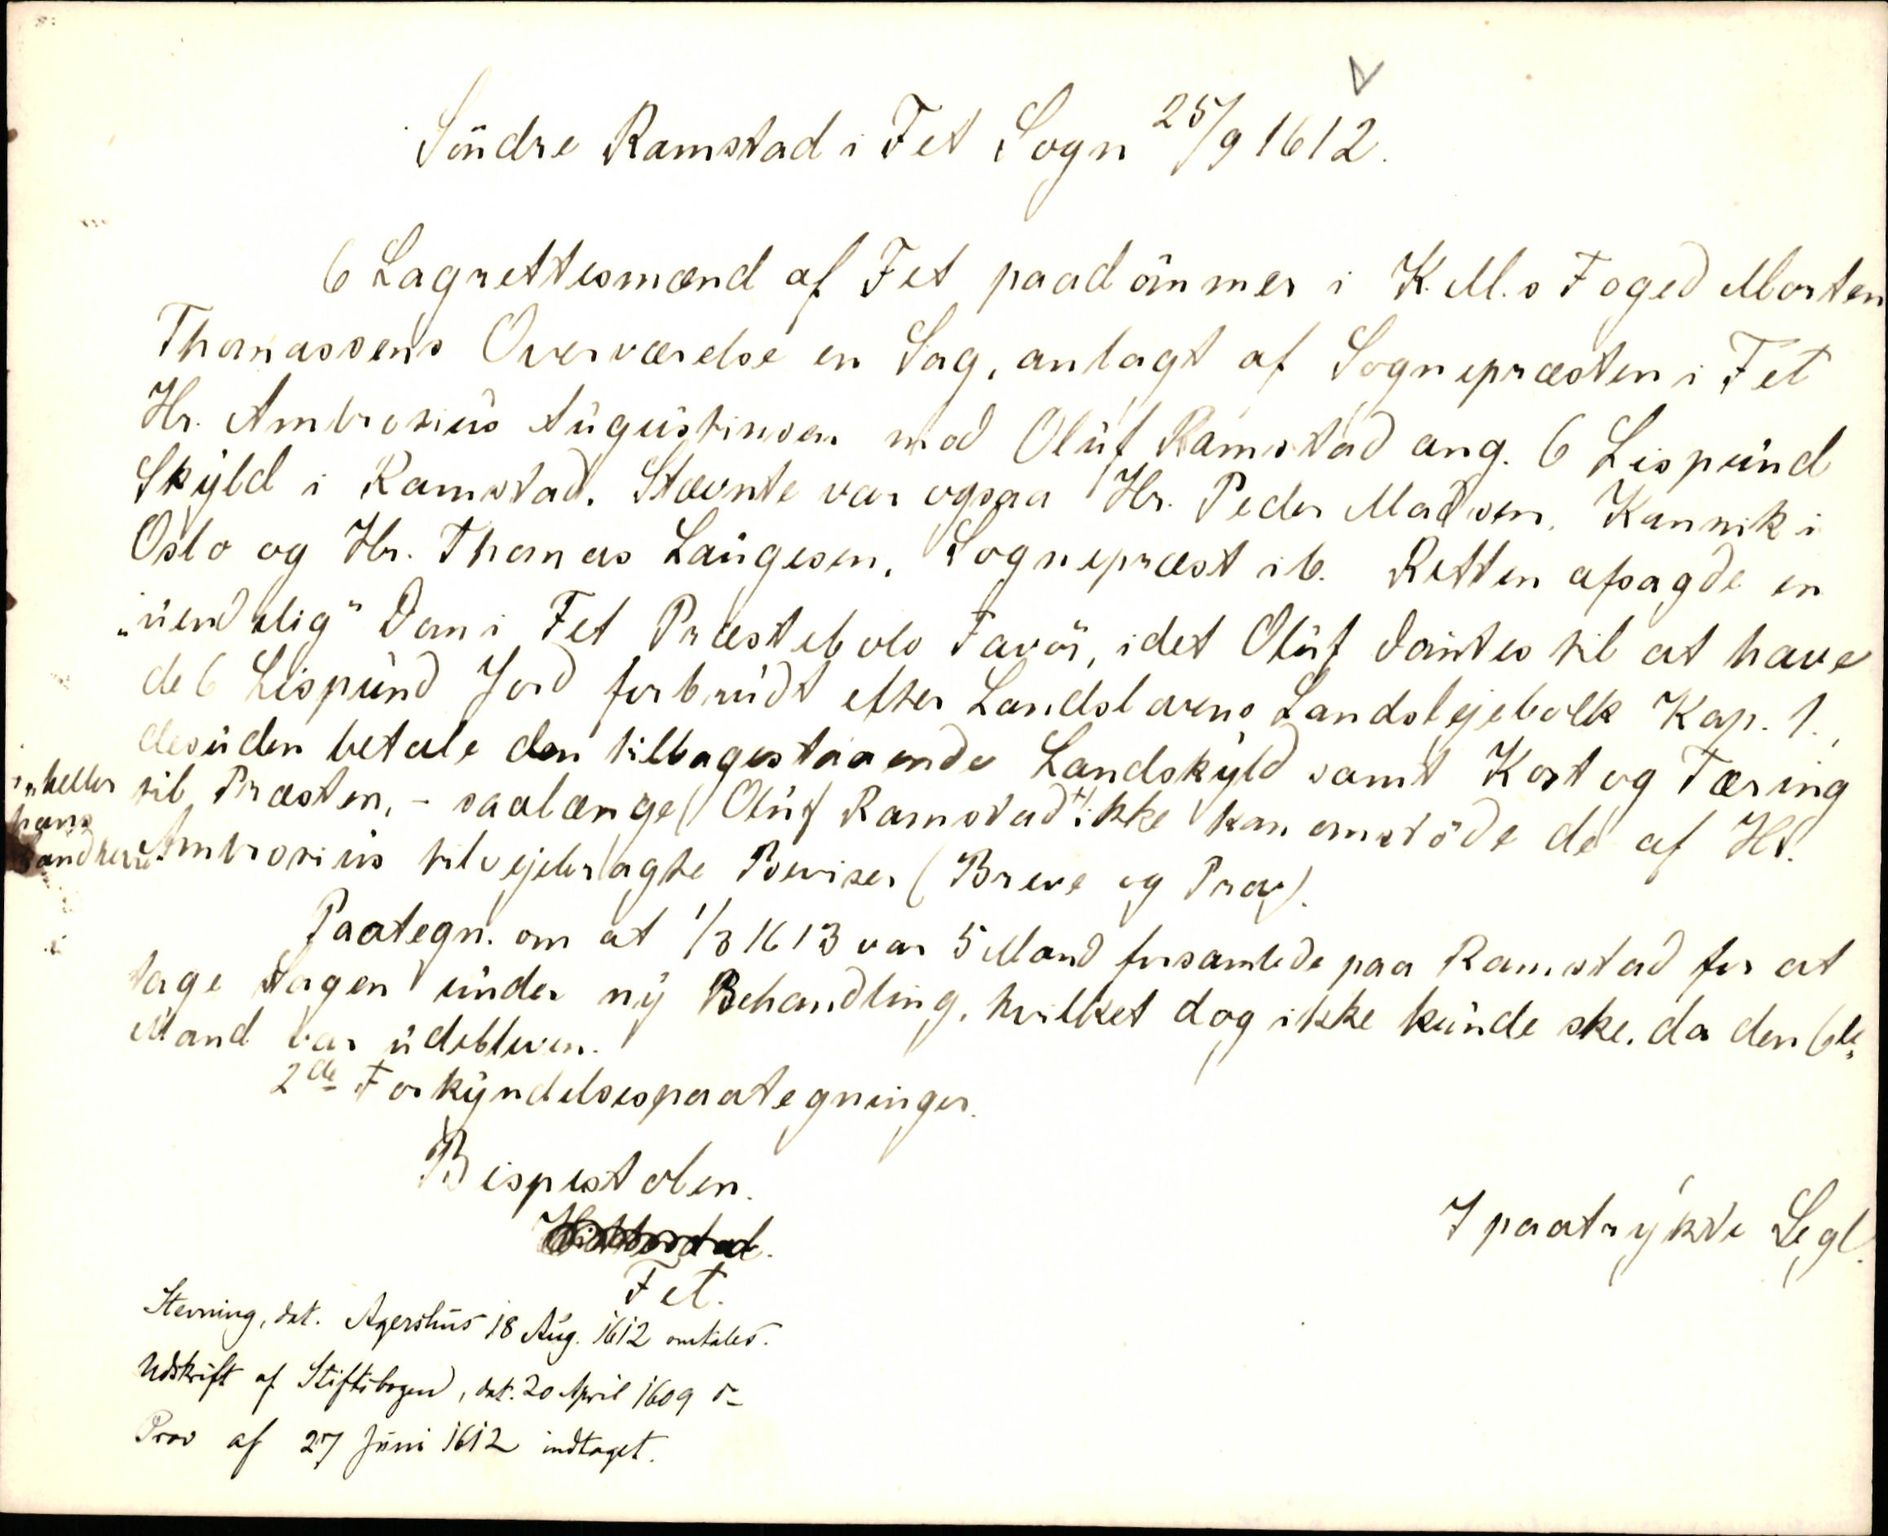 Söndre Ramstad i Fet Sogn 25/9 1612.
6 Lagrettesmænd af Fet paadömmer i K.M.s Foged Morten
Thomassens Overværelse en Sag, anlagt af Sognepræsten i Fet
Hr. Ambrosius Augustinsen mod Oluf Ramstad ang. 6 Lispund
Skyld i Ramstad. Stævnte var ogsaa Hr. Peder Madsen, Kannik i
Oslo og Hr. Thomas Laugesen, Sognepræst ib. Retten afsagde en
"uendelig" Dom i Fet Præstebols Favör, idet Oluf dömtes til at have
de 6 Lispund Jord forbrudt efter Landslovens Landslejebolk Kap. 1.,
desuden betale den tilbagestaaende Landskyld samt Kost og Tæring
til Præsten, - saalænge Oluf Ramstad ikke kan omstöde de af Hr.
Ambrosius tilvejebragte Beviser (Breve og Prov).
eller
hans
Paategn. om at 1/3 1613 var 5 Mand forsamlede paa Ramstad for at
tage Sagen under ny Behandling, hvilket dog ikke kunde ske, da den 6te
Mand var udebleven.
2de Forkyndelsespaategninger.
Bispestolen.
Fet.
7 paatrykte Segl.
Stevning, dat. Agershus 18 Aug. 1612 omtales.
Udskrift af Stiftsbogen, dat. 20 April 1609 o
Prov af 27 Juni 1612 indtaget.